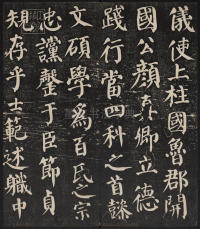 儀使上柱國魯郡開
國公顏真卿立德
踐行當四科之首懿
文碩學爲百氏之宗
忠讜罄于臣節貞
規存乎士範述職中